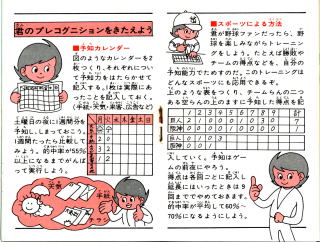 君のプレコグニションをきたえよう
■予知カレンダー
図のようなカレンダーを2
枚つくり、それぞれについ
て予知力をはたらかせて
記入する。1枚は実際にあ
ったことを記入しておく。
(手紙・天気・来客・広告など)
土曜日の夜に1週間分を
予知し、しまっておこう。
1週間たったら比較して
みよう。的中率が55%
以上になるまでがんば
って実行しよう。
月火水木金土日
天気
手紙
チラシ
■スポーツによる方法
君が野球ファンだったら、野
球を楽しみながらトレーニン
グをしよう。たとえば勝敗や
チームの得点などを、自分の
予知能力でためすのだ。このトレーニングは
どんなスポーツにも応用できるぞ。
上のような表をつくり、チームらんの二つ
ある空らんの上のますに予知した得点を記
1 2 3 4 5 6 7 8 9 計
巨人
阪神
巨人
阪神
入していく。予知はゲー
ムの前夜にやろう。
得点は各回ごとに記入し
延長にはいったときは9
回まででやめておきます。
的中率が平均して60%〜
70%になるようにしよう。